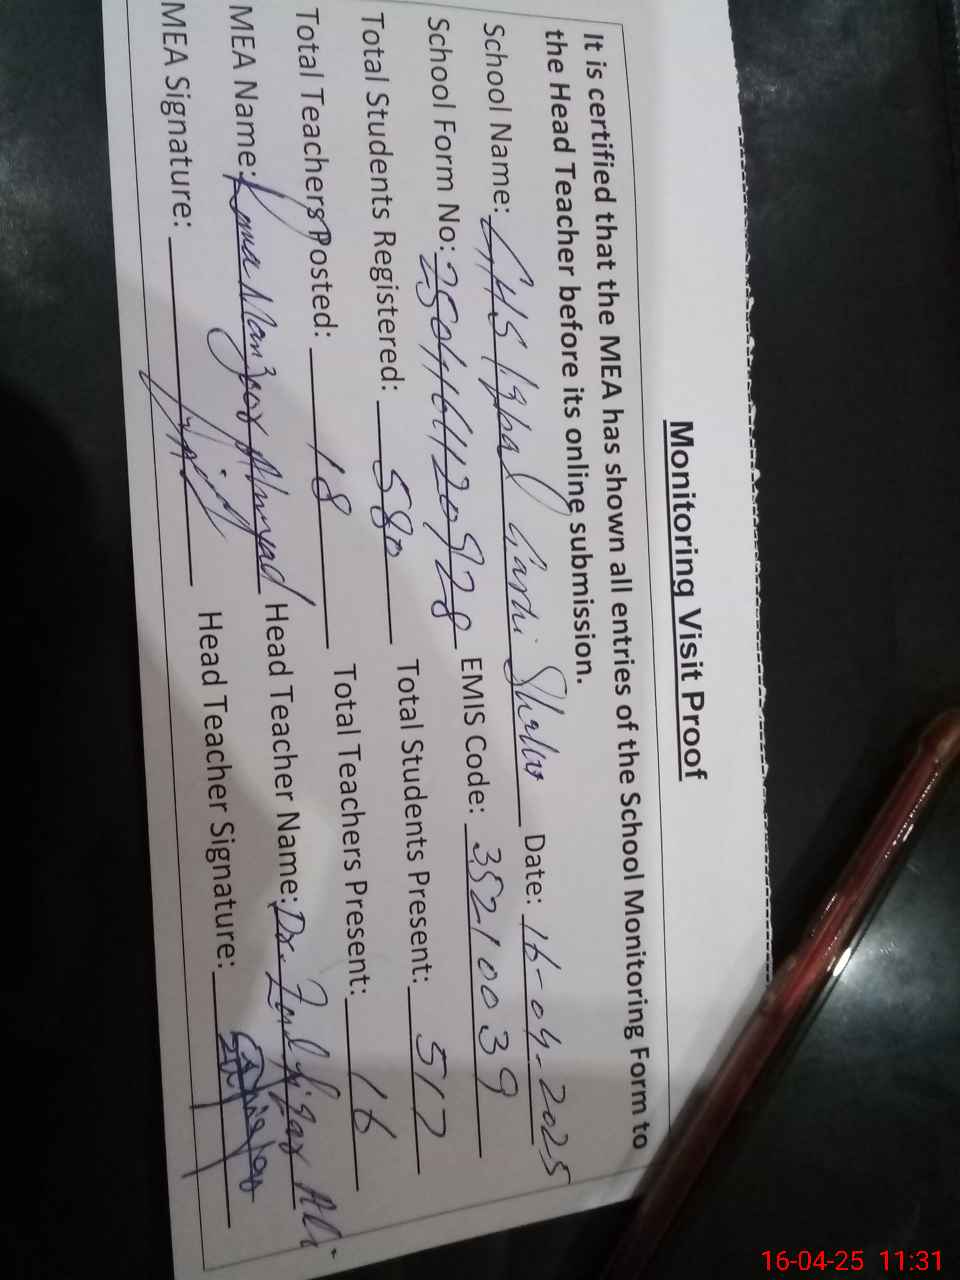 Monitoring Visit Proof
It is certified that the MEA has shown all entries of the School Monitoring Form to
the Head Teacher before its online submission.
School Name: GHS Iqbal Garhi Shahu Date: 16-04-2025
School Form No: EMIS Code: 35210039
Total Students Registered: 580 Total Students Present: 517
Total Teachers Posted: 18 Total Teachers Present: 16
MEA Name: Manzoor Ahmad Head Teacher Name: Dr. Zulfiqar Ali
MEA Signature: Head Teacher Signature:
16-04-25 11:31